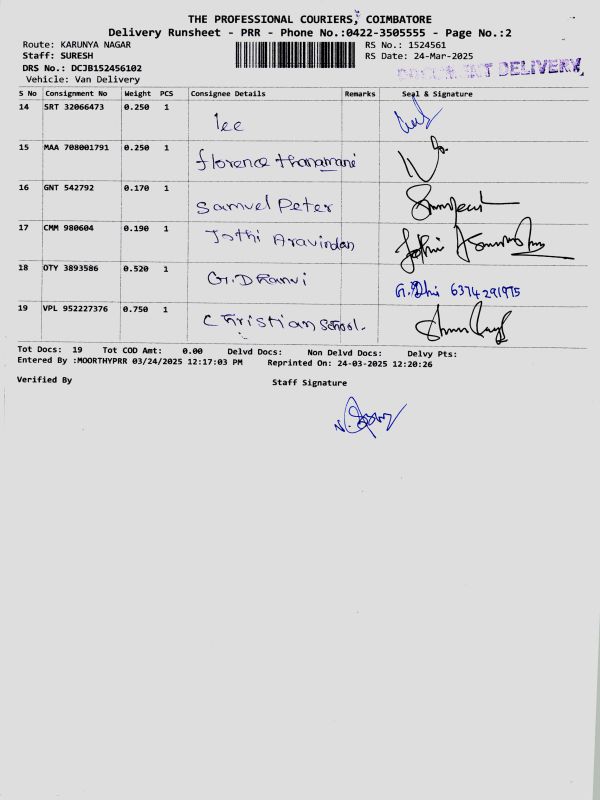 THE PROFESSIONAL COURIERS, COIMBATORE
Delivery Runsheet - PRR - Phone No.:0422-3505555 - Page No.:2
Route: KARUNYA NAGAR RS No.: 1524561
Staff: SURESH RS Date: 24-Mar-2025
DRS No.: DCJB152456102 DOCUMENT DELIVERY
Vehicle: Van Delivery
S No Consignment No Weight PCS Consignee Details Remarks Seal & Signature
14 SRT 32066473 0.250 1 lee
15 MAA 708001791 0.250 1 florence thanamani
16 GNT 542792 0.170 1 Samuel Peter
17 CMM 980604 0.190 1 Jothi Aravindan
18 OTY 3893586 0.520 1 G.Dhanvi 6374291975
19 VPL 952227376 0.750 1 Christian School.
Tot Docs: 19 Tot COD Amt: 0.00 Delvd Docs: Non Delvd Docs: Delvy Pts:
Entered By :MOORTHYPRR 03/24/2025 12:17:03 PM Reprinted On: 24-03-2025 12:20:26
Verified By Staff Signature